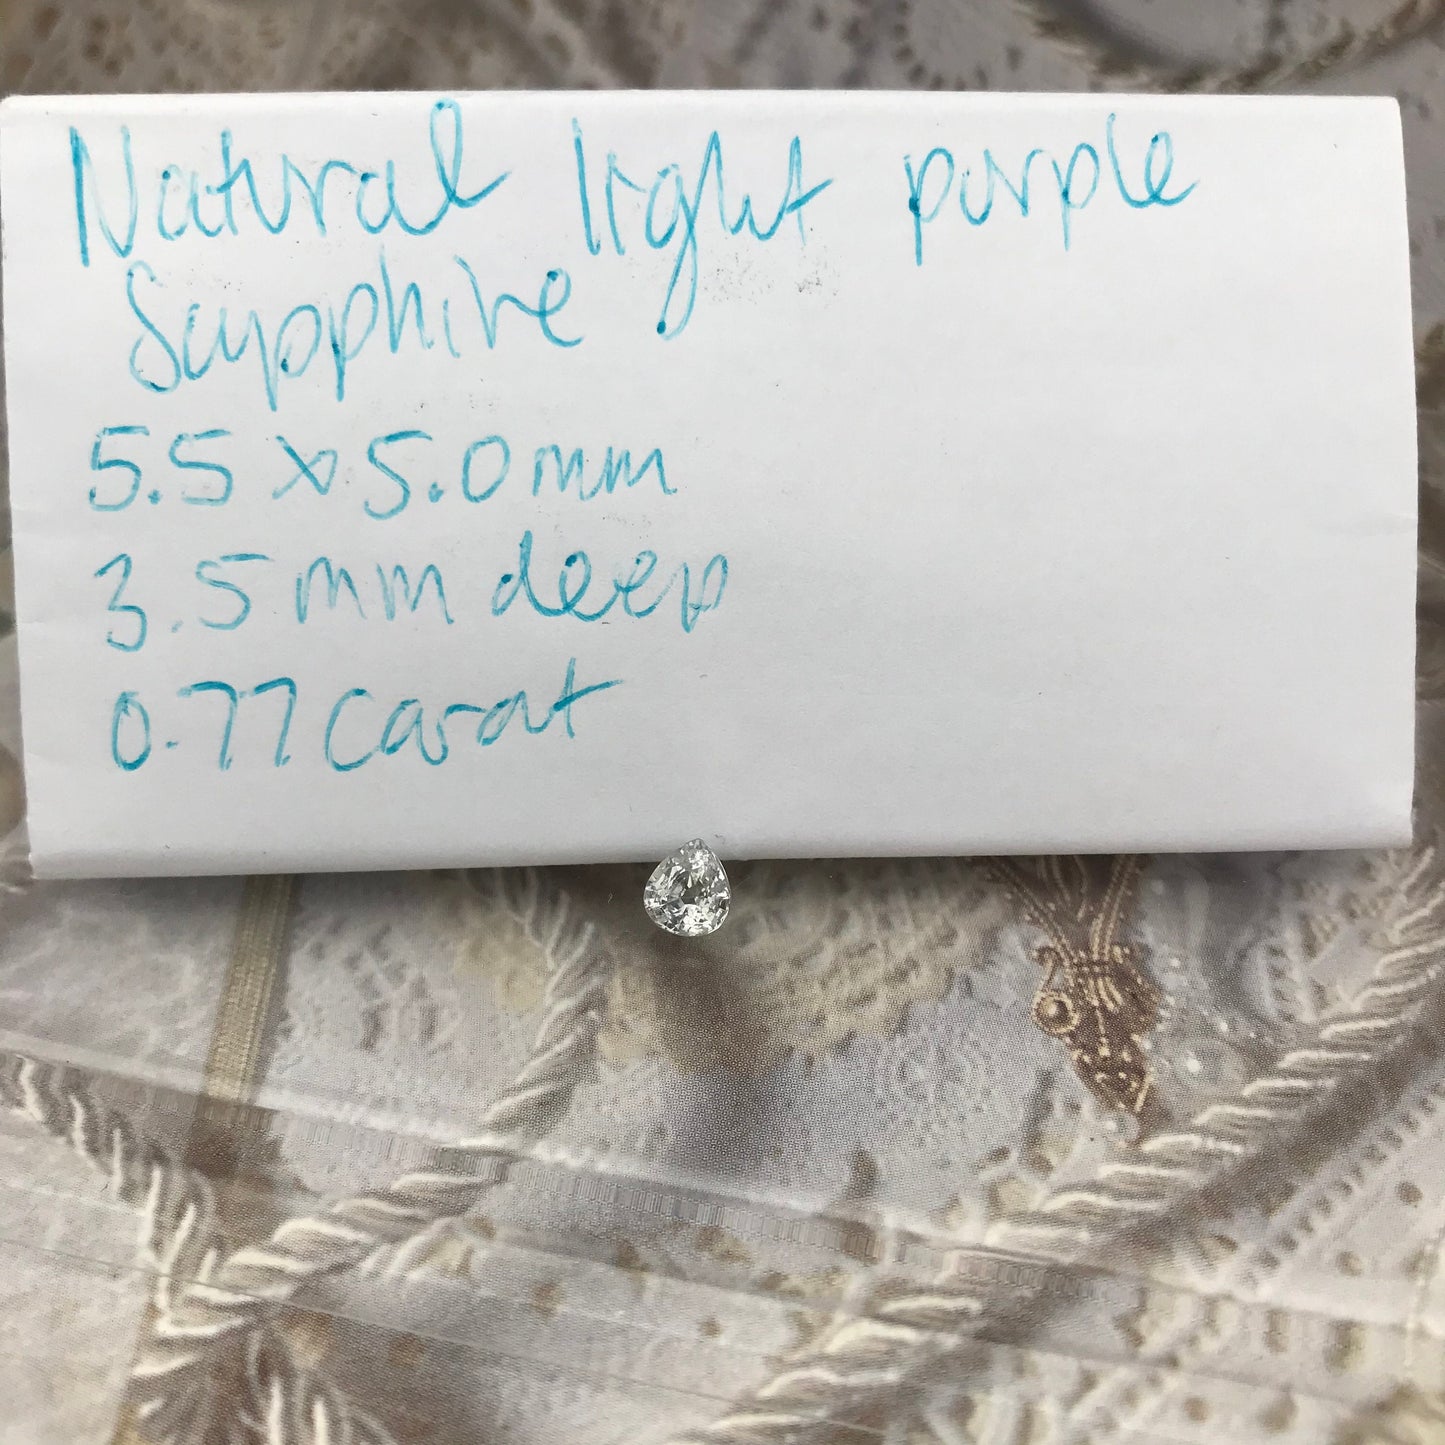 Natural light purple
Sapphire
5.5 x 5.0mm
3.5mm deep
0.77 carat